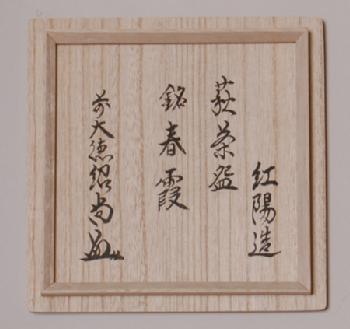 紅陽造
萩茶盌
銘 春霞
前大徳紹尚